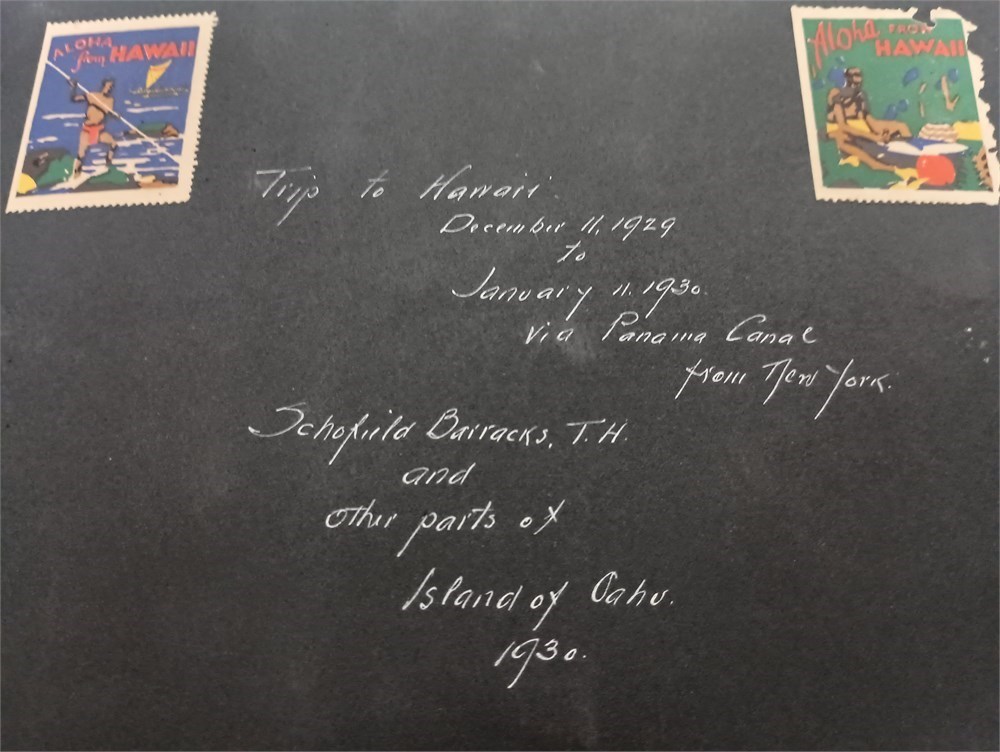 ALOHA
from HAWAII
Aloha FROM
HAWAII
Trip to Hawaii.
December 11, 1929
to
January 11. 1930.
via Panama Canal
from New York.
Schofield Barracks, T.H.
and
other parts of
Island of Oahu.
1930.